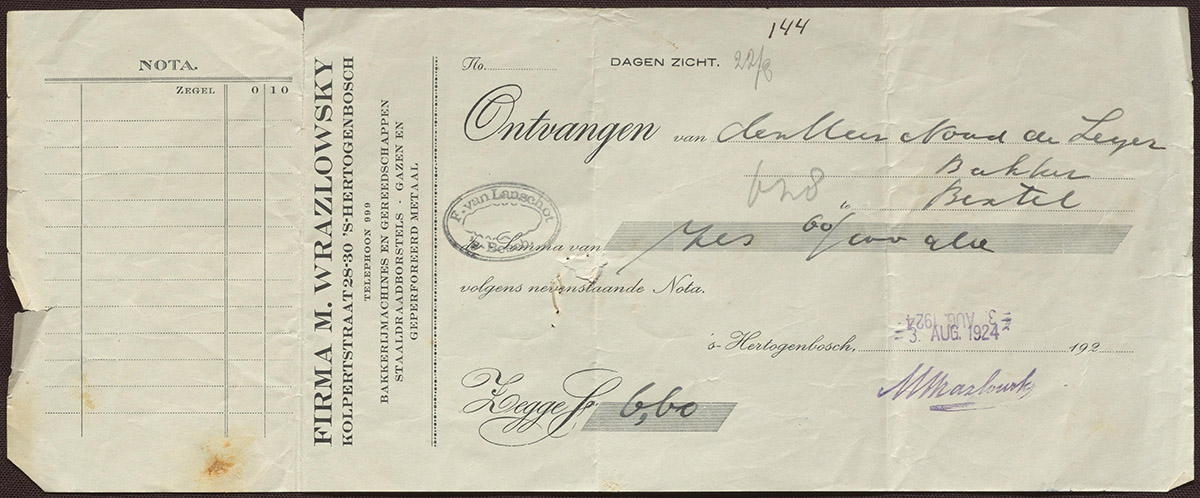 NOTA.
ZEGEL 0 10
FIRMA M. WRAZLOWSKY
KOLPERTSTRAAT 28-30 'S-HERTOGENBOSCH
TELEPHOON 999
BAKKERIJMACHINES EN GEREEDSCHAPPEN
STAALDRAADBORSTELS · GAZEN EN
GEPERFOREERD METAAL
144
No. DAGEN ZICHT. 22/8
Ontvangen van den Heer Noud de Leyer
Bakker
628
te Bextel
F. van Lanschot
's-Bosch
de Somma van Zes 60/100 gld
volgens nevenstaande Nota.
3 AUG. 1924
's-Hertogenbosch, 3. AUG. 1924 192
MWrazlowsky
Zegge f 6,60